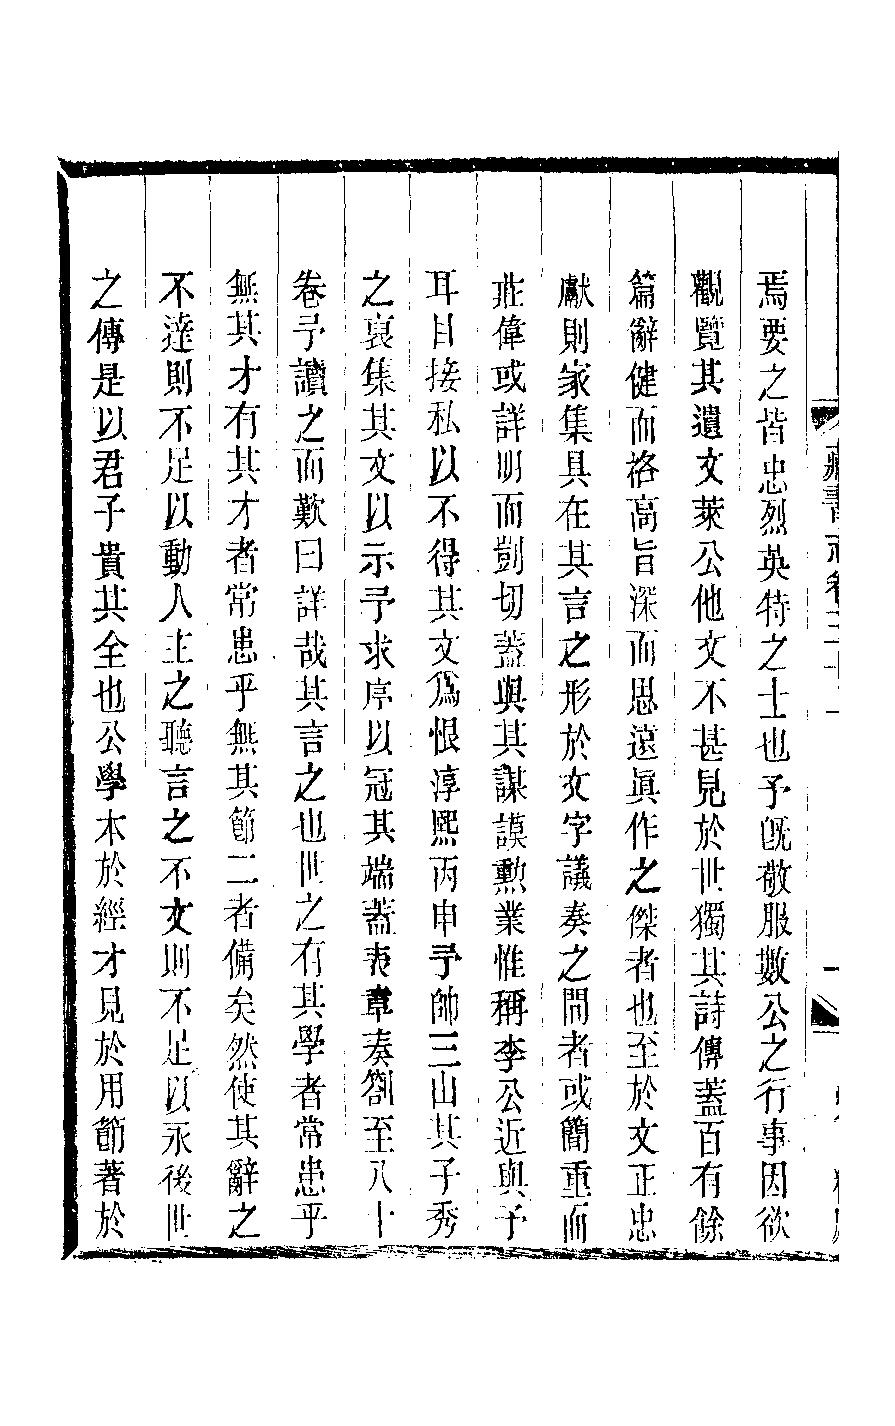 藏書志卷三十
焉要之皆忠烈英特之士也予旣敬服數公之行事因欲
觀覽其遺文萊公他文不甚見於世獨其詩傳蓋百有餘
篇辭健而格高旨深而思遠眞作之傑者也至於文正忠
獻則家集具在其言之形於文字議奏之間者或簡重而
莊偉或詳明而剴切蓋與其謀謨勲業惟稱李公近與予
耳目接私以不得其文爲恨淳熙丙申予帥三山其子秀
之裒集其文以示予求序以冠其端蓋表章奏劄至八十
卷予讀之而歎曰詳哉其言之也世之有其學者常患乎
無其才有其才者常患乎無其節二者備矣然使其辭之
不達則不足以動人主之聽言之不文則不足以永後世
之傳是以君子貴其全也公學本於經才見於用節著於